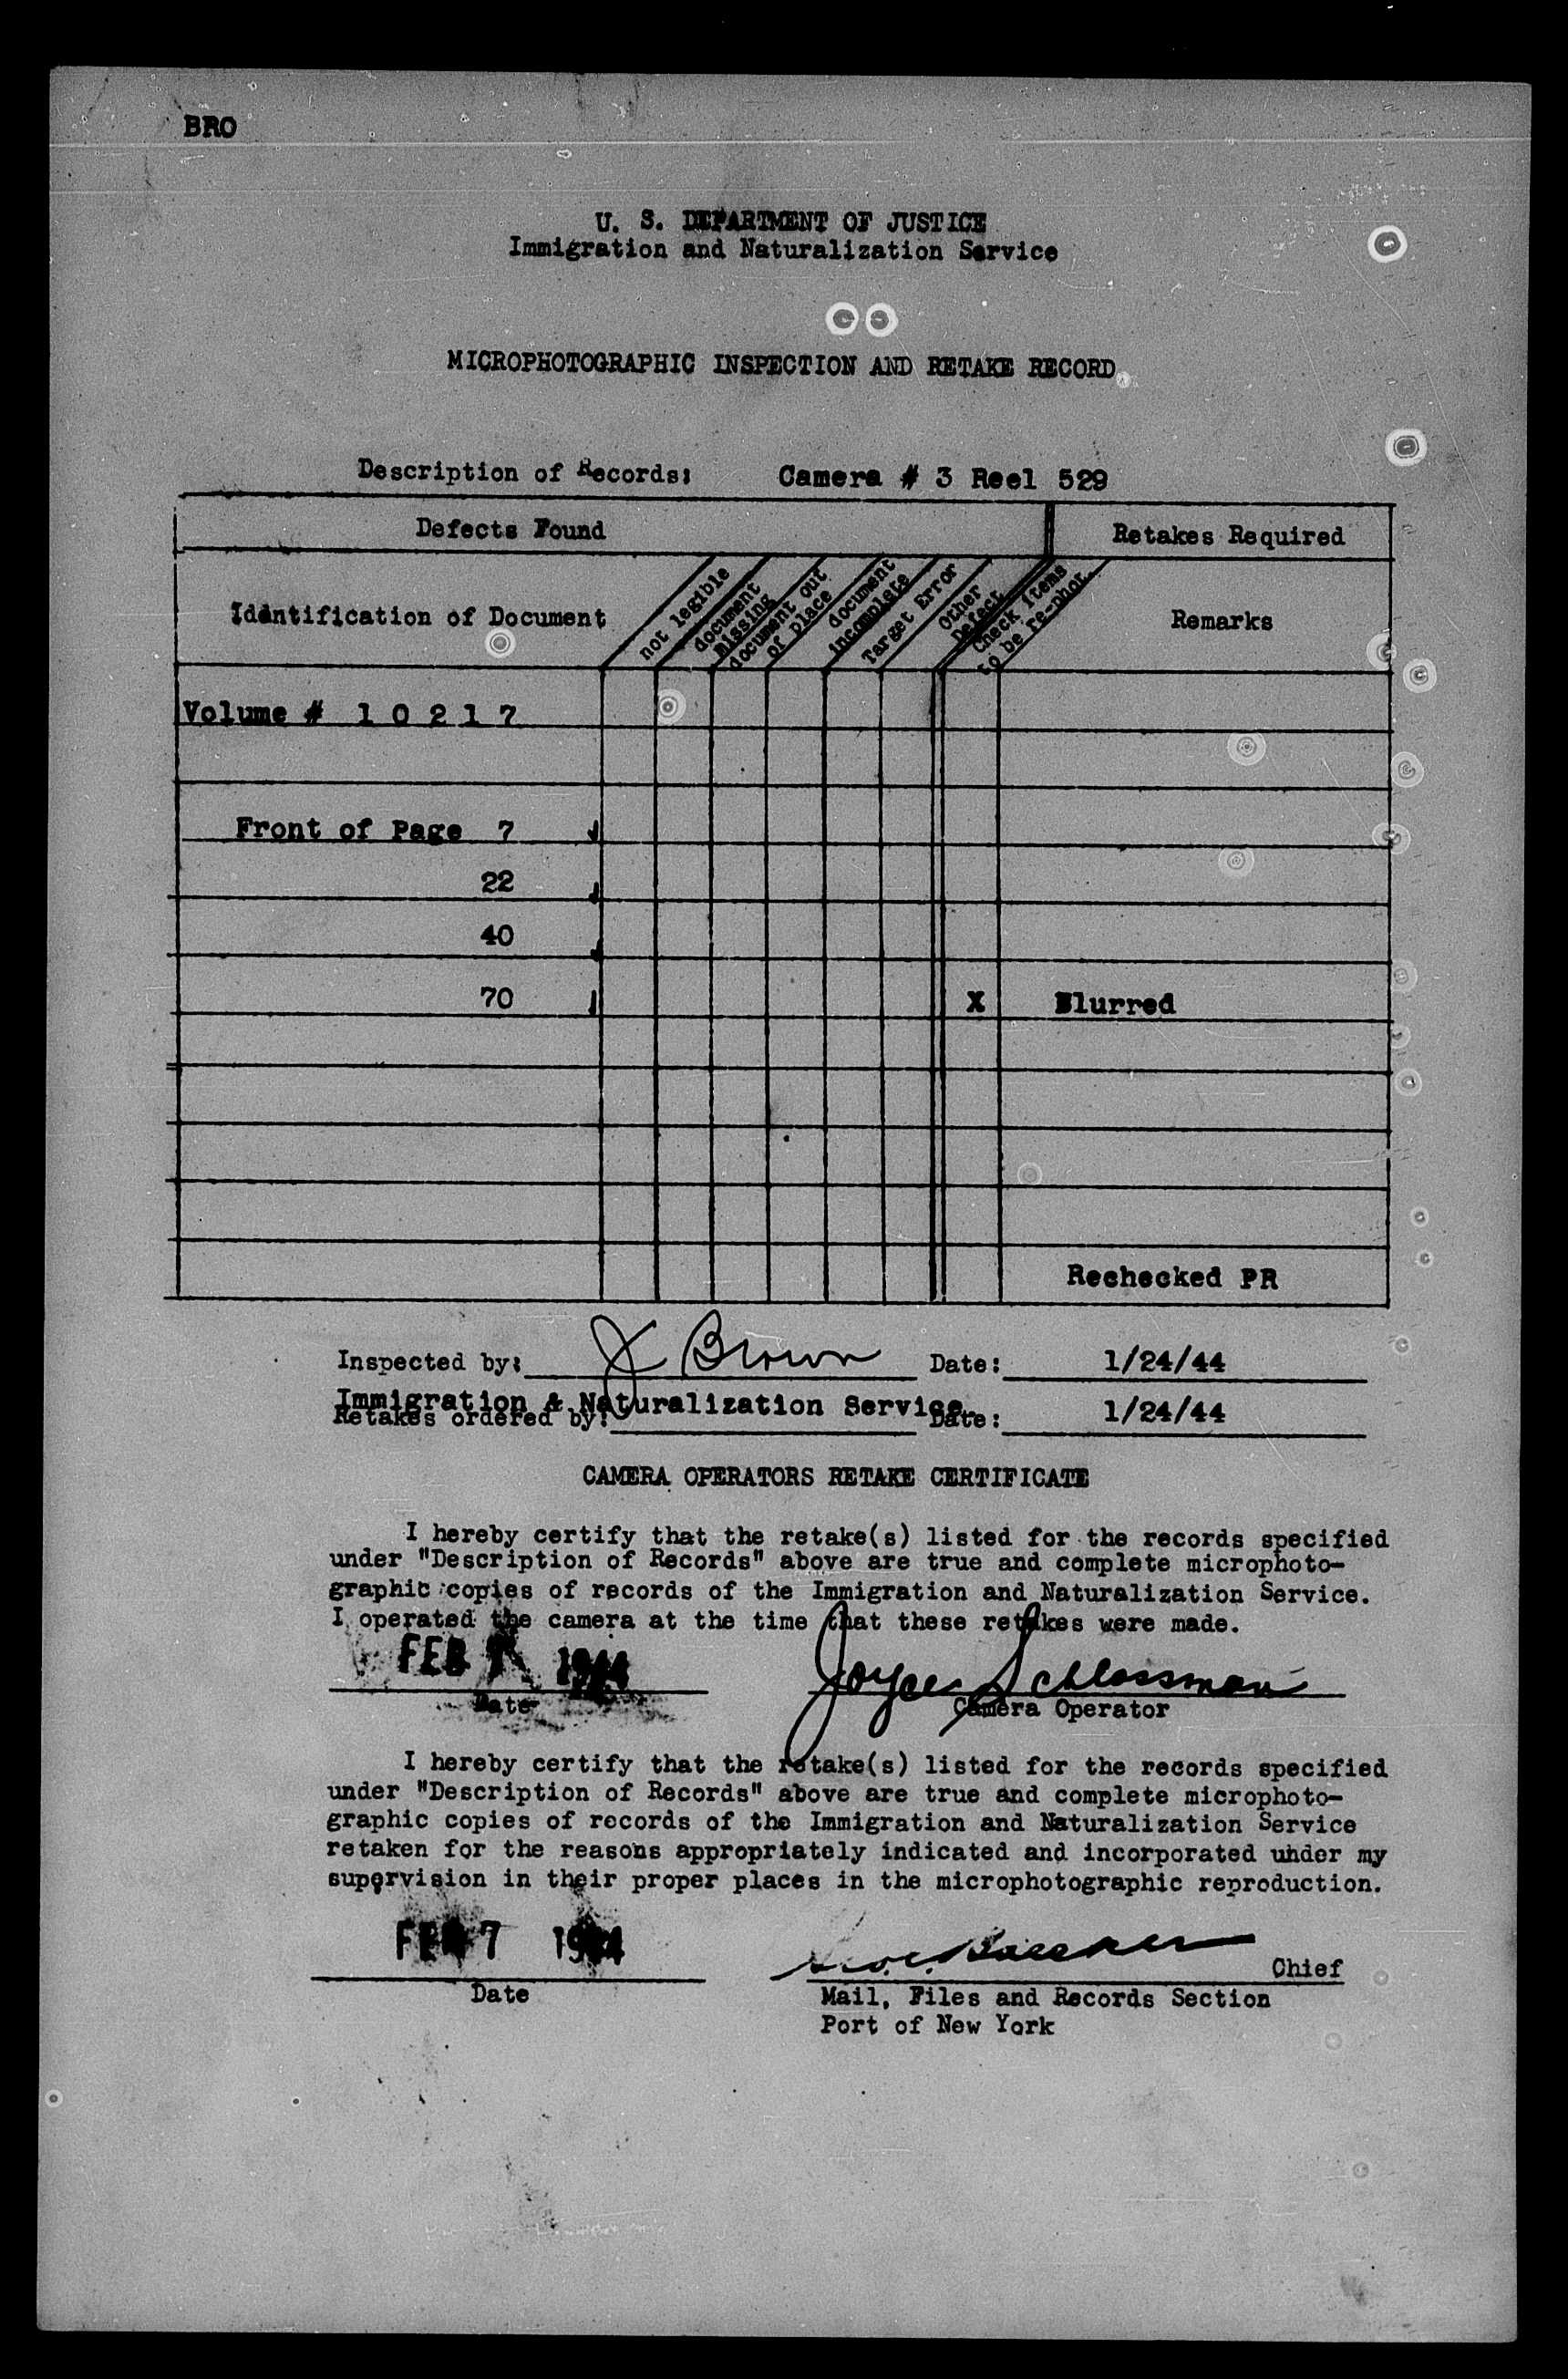 BRO
U. S. DEPARTMENT OF JUSTICE
Immigration and Naturalization Service
MICROPHOTOGRAPHIC INSPECTION AND RETAKE RECORD
Description of Records: Camera # 3 Reel 529
Defects Found
Retakes Required
Identification of Document
not legible
document missing
document out of place
document incomplete
Target Error
Other Defect
Check items to be re-phot.
Remarks
Volume # 1 0 2 1 7
Front of Page 7
22
40
70 X Blurred
Rechecked PR
Inspected by: J Brown Date: 1/24/44
Immigration & Naturalization Service
Retakes ordered by: Date: 1/24/44
CAMERA OPERATORS RETAKE CERTIFICATE
I hereby certify that the retake(s) listed for the records specified
under "Description of Records" above are true and complete microphoto-
graphic copies of records of the Immigration and Naturalization Service.
I operated the camera at the time that these retakes were made.
FEB 1944 Joyce Schlossman
Date Camera Operator
I hereby certify that the retake(s) listed for the records specified
under "Description of Records" above are true and complete microphoto-
graphic copies of records of the Immigration and Naturalization Service
retaken for the reasons appropriately indicated and incorporated under my
supervision in their proper places in the microphotographic reproduction.
FEB 7 1944 Chief
Date Mail, Files and Records Section
Port of New York